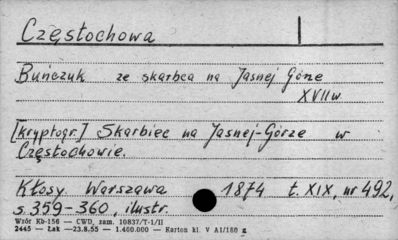 Częstochowa
Buńczuk ze skarbca na Jasnej Górze
XVII w
[kryptogr.] Skarbiec na Jasnej-Górze w
Częstochowie.
Kłosy Warszawa 1874 t. XIX, nr 492,
s 359-360, ilustr.
Wzór Kb-156 — CWD, zam. 10837/T-1/II
2445 — Łak —23.8.55 — 1.400.000 — Karton kl. V A1/180 g